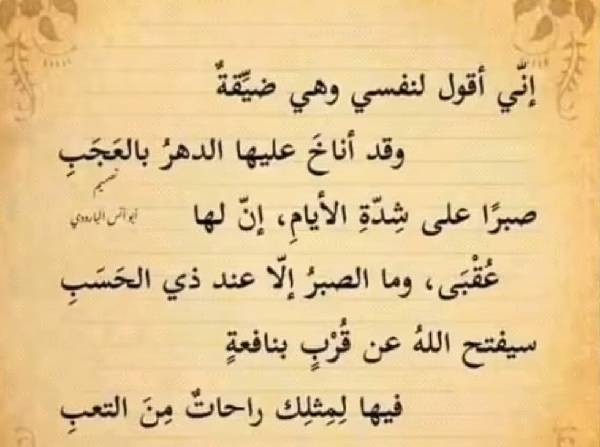 إنّي أقول لنفسي وهي ضيِّقةٌ
وقد أناخَ عليها الدهرُ بالعَجَبِ
تصميم
صبرًا على شِدّةِ الأيامِ، إنّ لها
أبو أنس البارودي
عُقْبَى، وما الصبرُ إلّا عند ذي الحَسَبِ
سيفتح اللهُ عن قُرْبٍ بنافعةٍ
فيها لِمِثلِك راحاتٌ مِنَ التعبِ